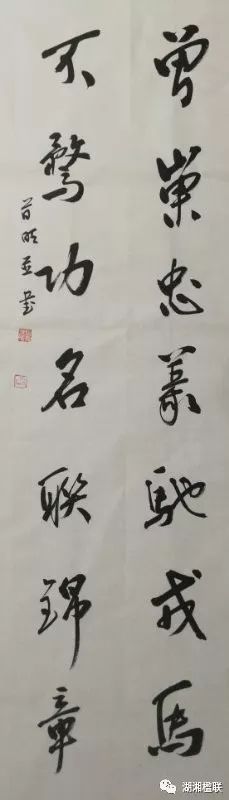 曾崇忠義馳戎馬
不騖功名聯錦章
並書
湖湘楹联